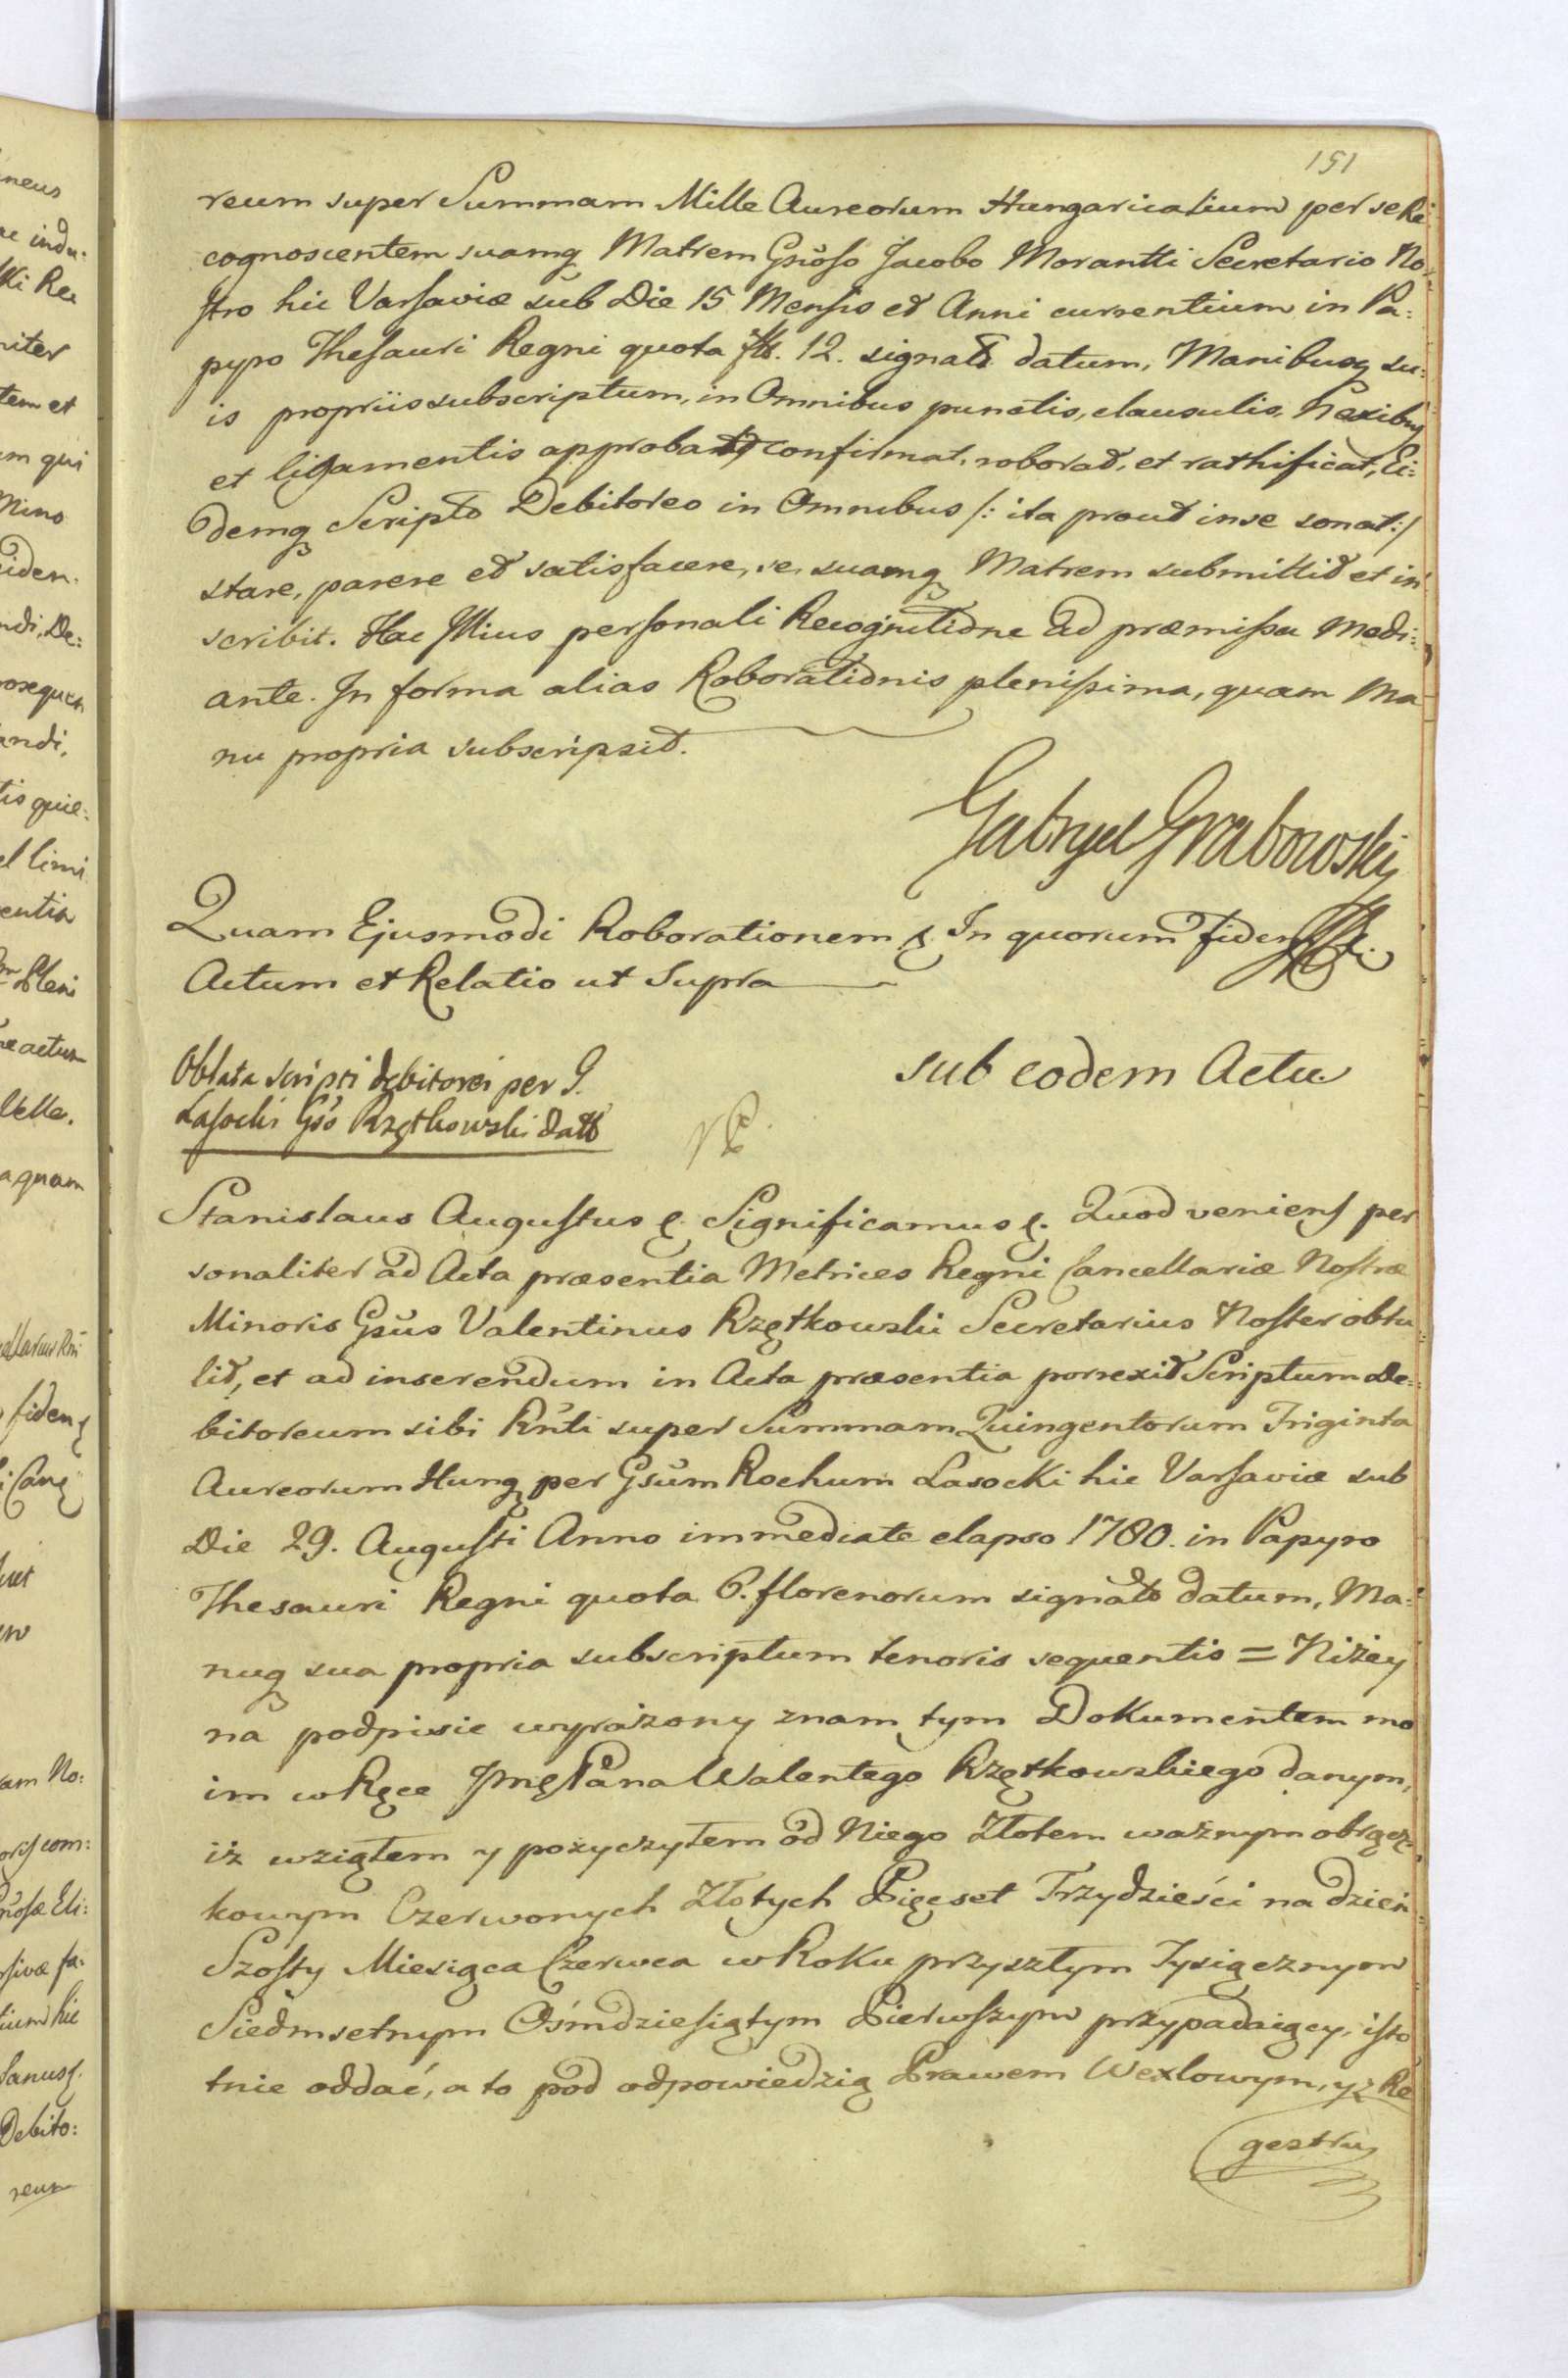 151
reum super Summam Mille Aureorum Hungaricalium per se Re
cognoscentem suamq Matrem Gnoso Jacobo Morantti Secretario No:
stro hic Varsaviæ sub Die 15 Mensis et Anni currentium in Pa:
pyro Thesauri Regni quota fls. 12. signato datum, Manibusq su:
is propriis subscriptum, in Omnibus punctis, clausulis, Nexibus
et ligamentis approbat confirmat, roborat, et rathificat, Ei:
demq Scripto Debitoreo in Omnibus /: ita prout in se sonat :/
stare, parere et satisfacere, se, suamq Matrem submittit et in
scribit. Hac Illius personali Recognitione ad præmissa Medi:
ante. In forma alias Roborationis plenissima, quam Ma
nu propria subscripsit.
Gabryel Grabowski
Quam Ejusmodi Roborationem & In quorum fidem
Actum et Relatio ut Supra
sub eodem Actu
Oblata scripti debitorei per G.
Lasocki Gso Rzętkowski datt
Stanislaus Augustus &. Significamus &. Quod veniens per
sonaliter ad Acta præsentia Metrices Regni Cancellariæ Nostræ
Minoris Gsus Valentinus Rzętkowski Secretarius Noster obtu
lit, et ad inserendum in Acta præsentia porrexit Scriptum De:
bitoreum sibi Rnti super Summam Quingentorum Triginta
Aureorum Hung per Gsum Rochum Lasocki hic Varsaviæ sub
Die 29. Augusti Anno immediate elapso 1780. in Papyro
Thesauri Regni quota 6. florenorum signato datum, Ma:
nuq sua propria subscriptum tenoris sequentis = Niżey
na podpisie wyrażony znam tym Dokumentem mo
im w Ręce Jmę Pana Walentego Rzętkowskiego danym,
iż wziąłem y pożyczyłem od Niego Złotem ważnym obrącz
kowym Czerwonych Złotych Pięcset Trzydzieści na dzień
Szosty Miesiąca Czerwca w Roku przyszłym Tysiącznym
Siedmsetnym Ośmdziesiątym Pierwszym przypadaiący, isto
tnie oddać, a to pod odpowiedzią Prawem Wexlowym, y z Re
gestru